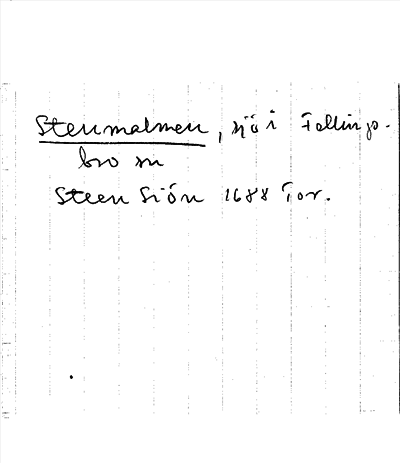 Stenmalmen, sjö i Fellings-
bro sn
Steen Siön 1688 For.